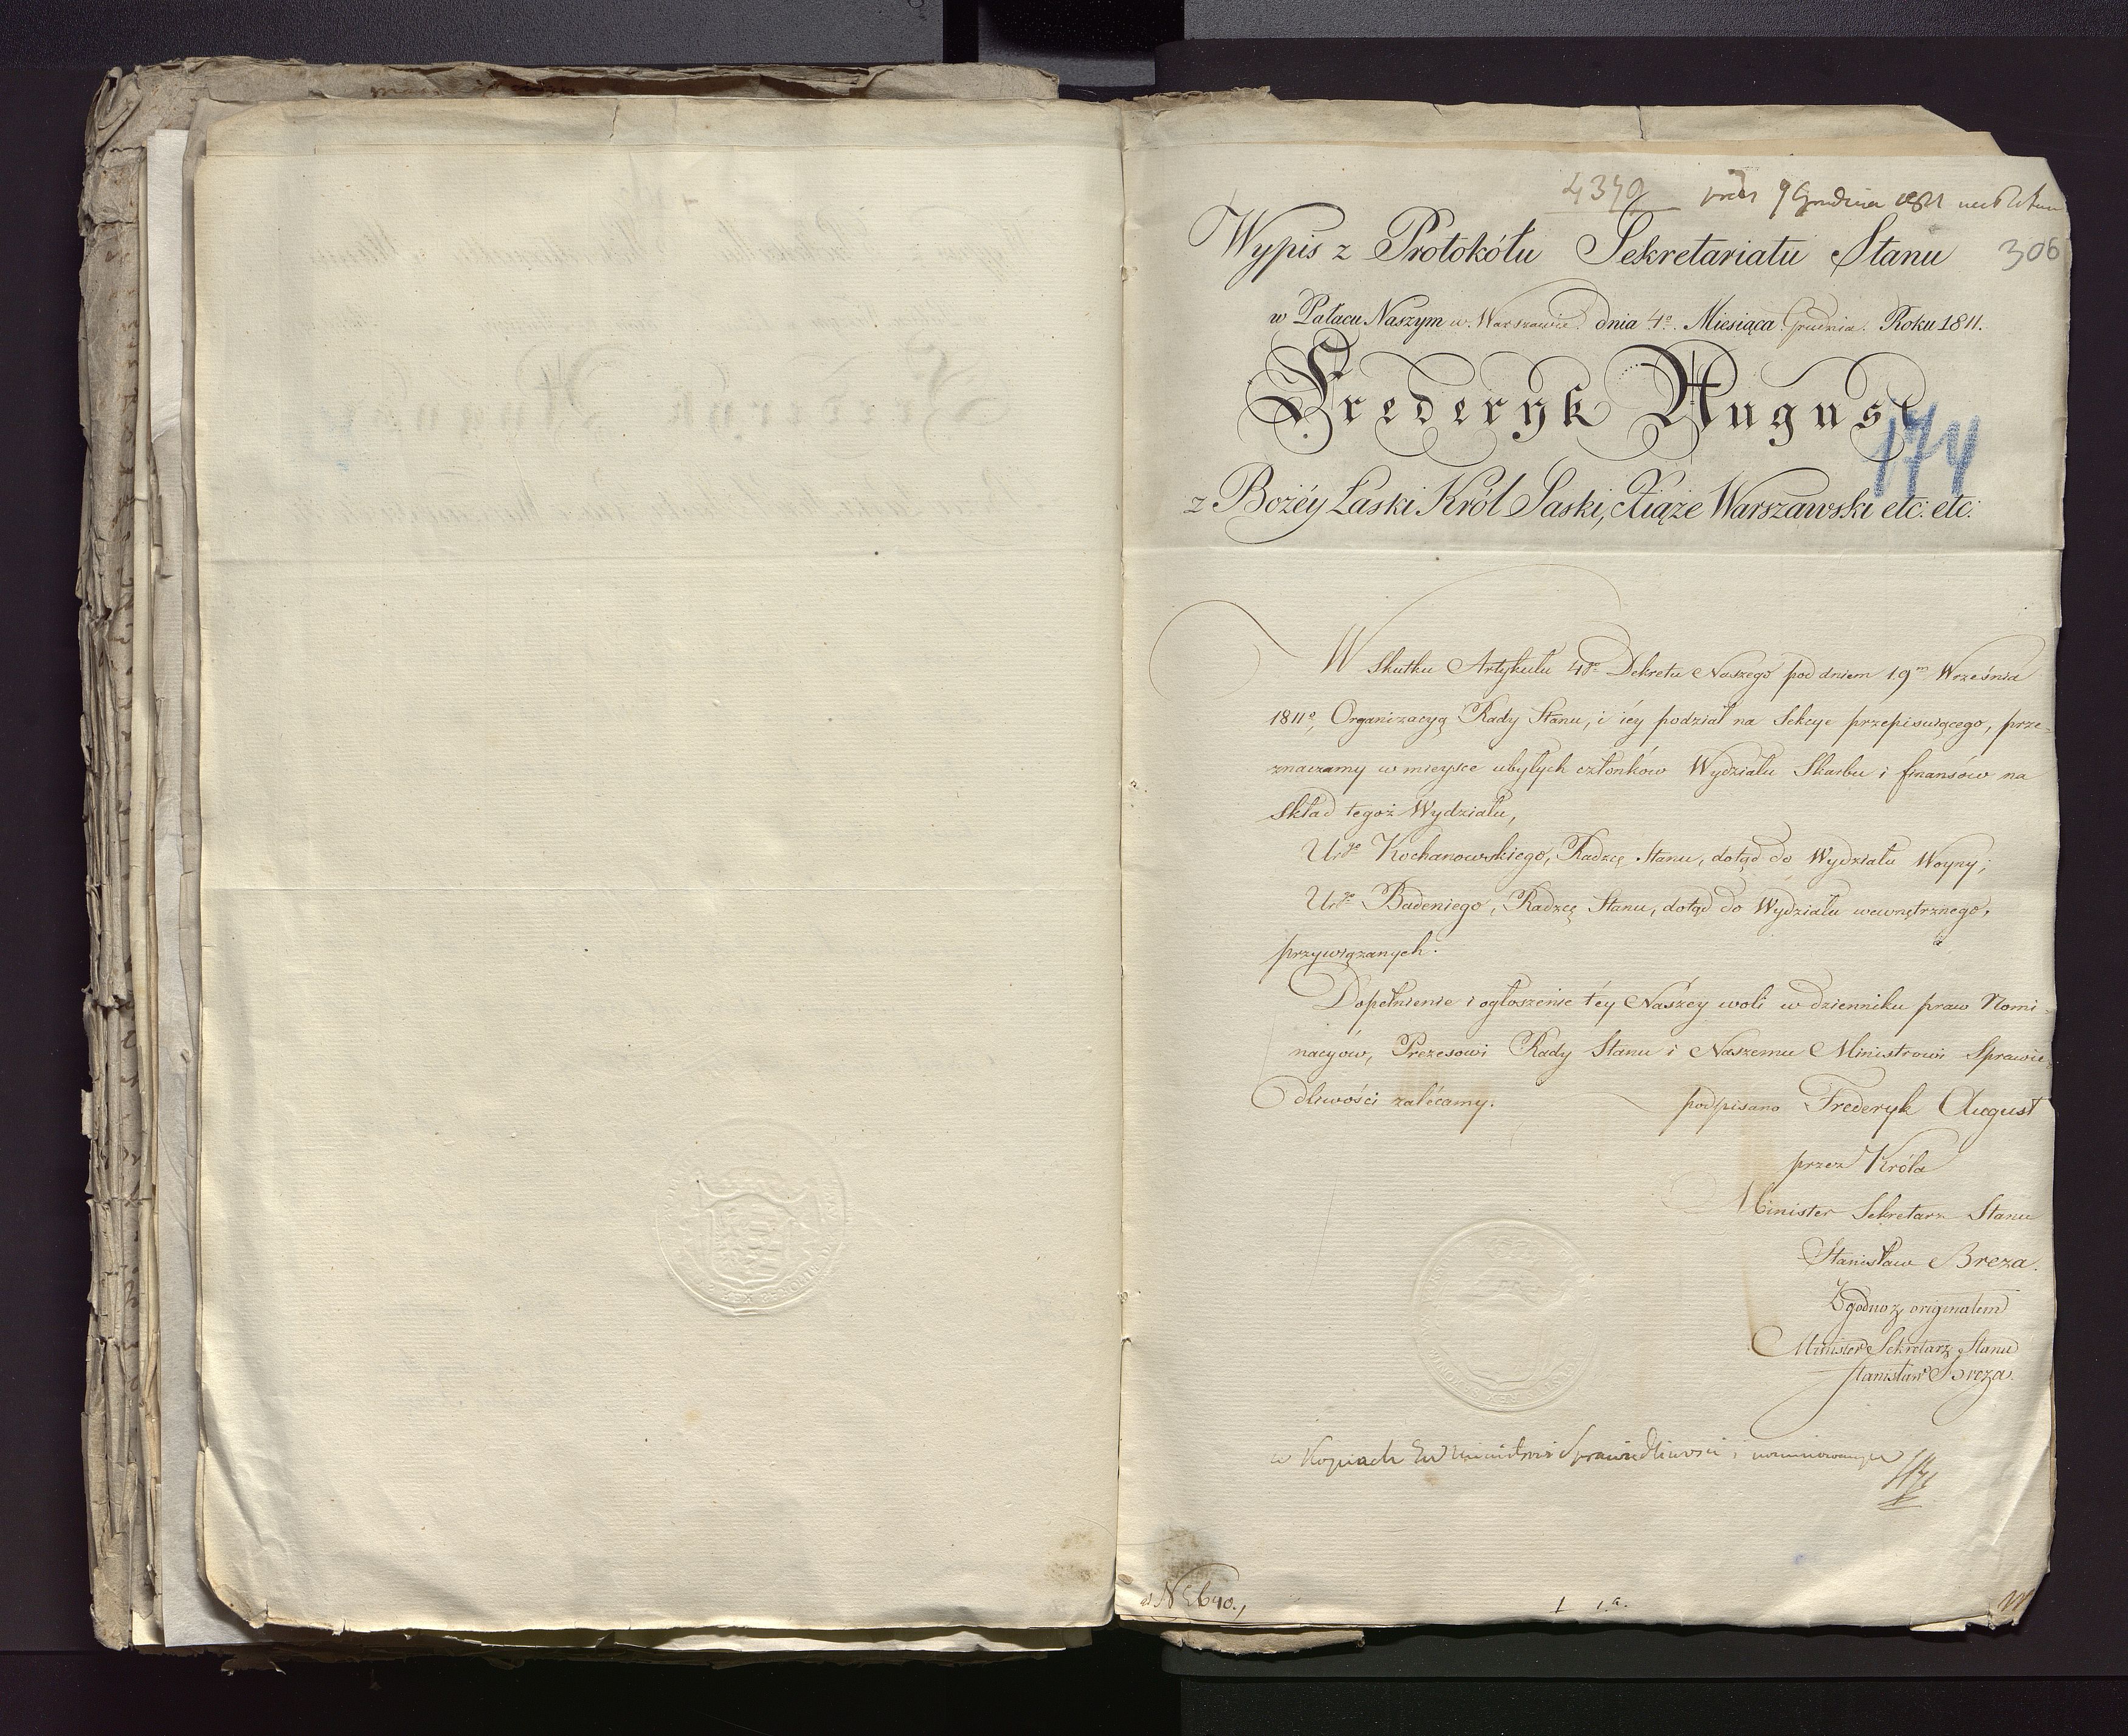 4379
9 Grudnia 1811
Wypis z Protokółu Sekretariatu Stanu
306
w Pałacu Naszym w Warszawie dnia 4º. Miesiąca Grudnia. Roku 1811.
Frederyk August
174
z Bożéy Łaski Król Saski, Xiąże Warszawski etc: etc:
W skutku Artykułu 4go Dekretu Naszego pod dniem 19m Września
1811º, Organizacyą Rady Stanu, i iéy podział na Sekcye przepisuiącego, prze-
znaczamy w mieysce ubyłych członków Wydziału Skarbu i finansów na
skład tegoż Wydziału,
Urgo Kochanowskiego, Radzcę Stanu, dotąd do Wydziału Woyny;
Urgo Badeniego, Radzcę Stanu, dotąd do Wydziału wewnętrznego,
przywiązanych.
Dopełnienie i ogłoszenie téy Naszéy woli w dzienniku praw Nomi-
nacyów, Prezesowi Rady Stanu i Naszemu Ministrowi Sprawie-
dliwości zalécamy.
podpisano Frederyk August
przez Króla
Minister Sekretarz Stanu
Stanisław Breza.
Zgodno z originałem
Minister Sekretarz Stanu
Stanisław Breza.
w Kopiach Ministrowi Sprawiedliwości i nominowanym